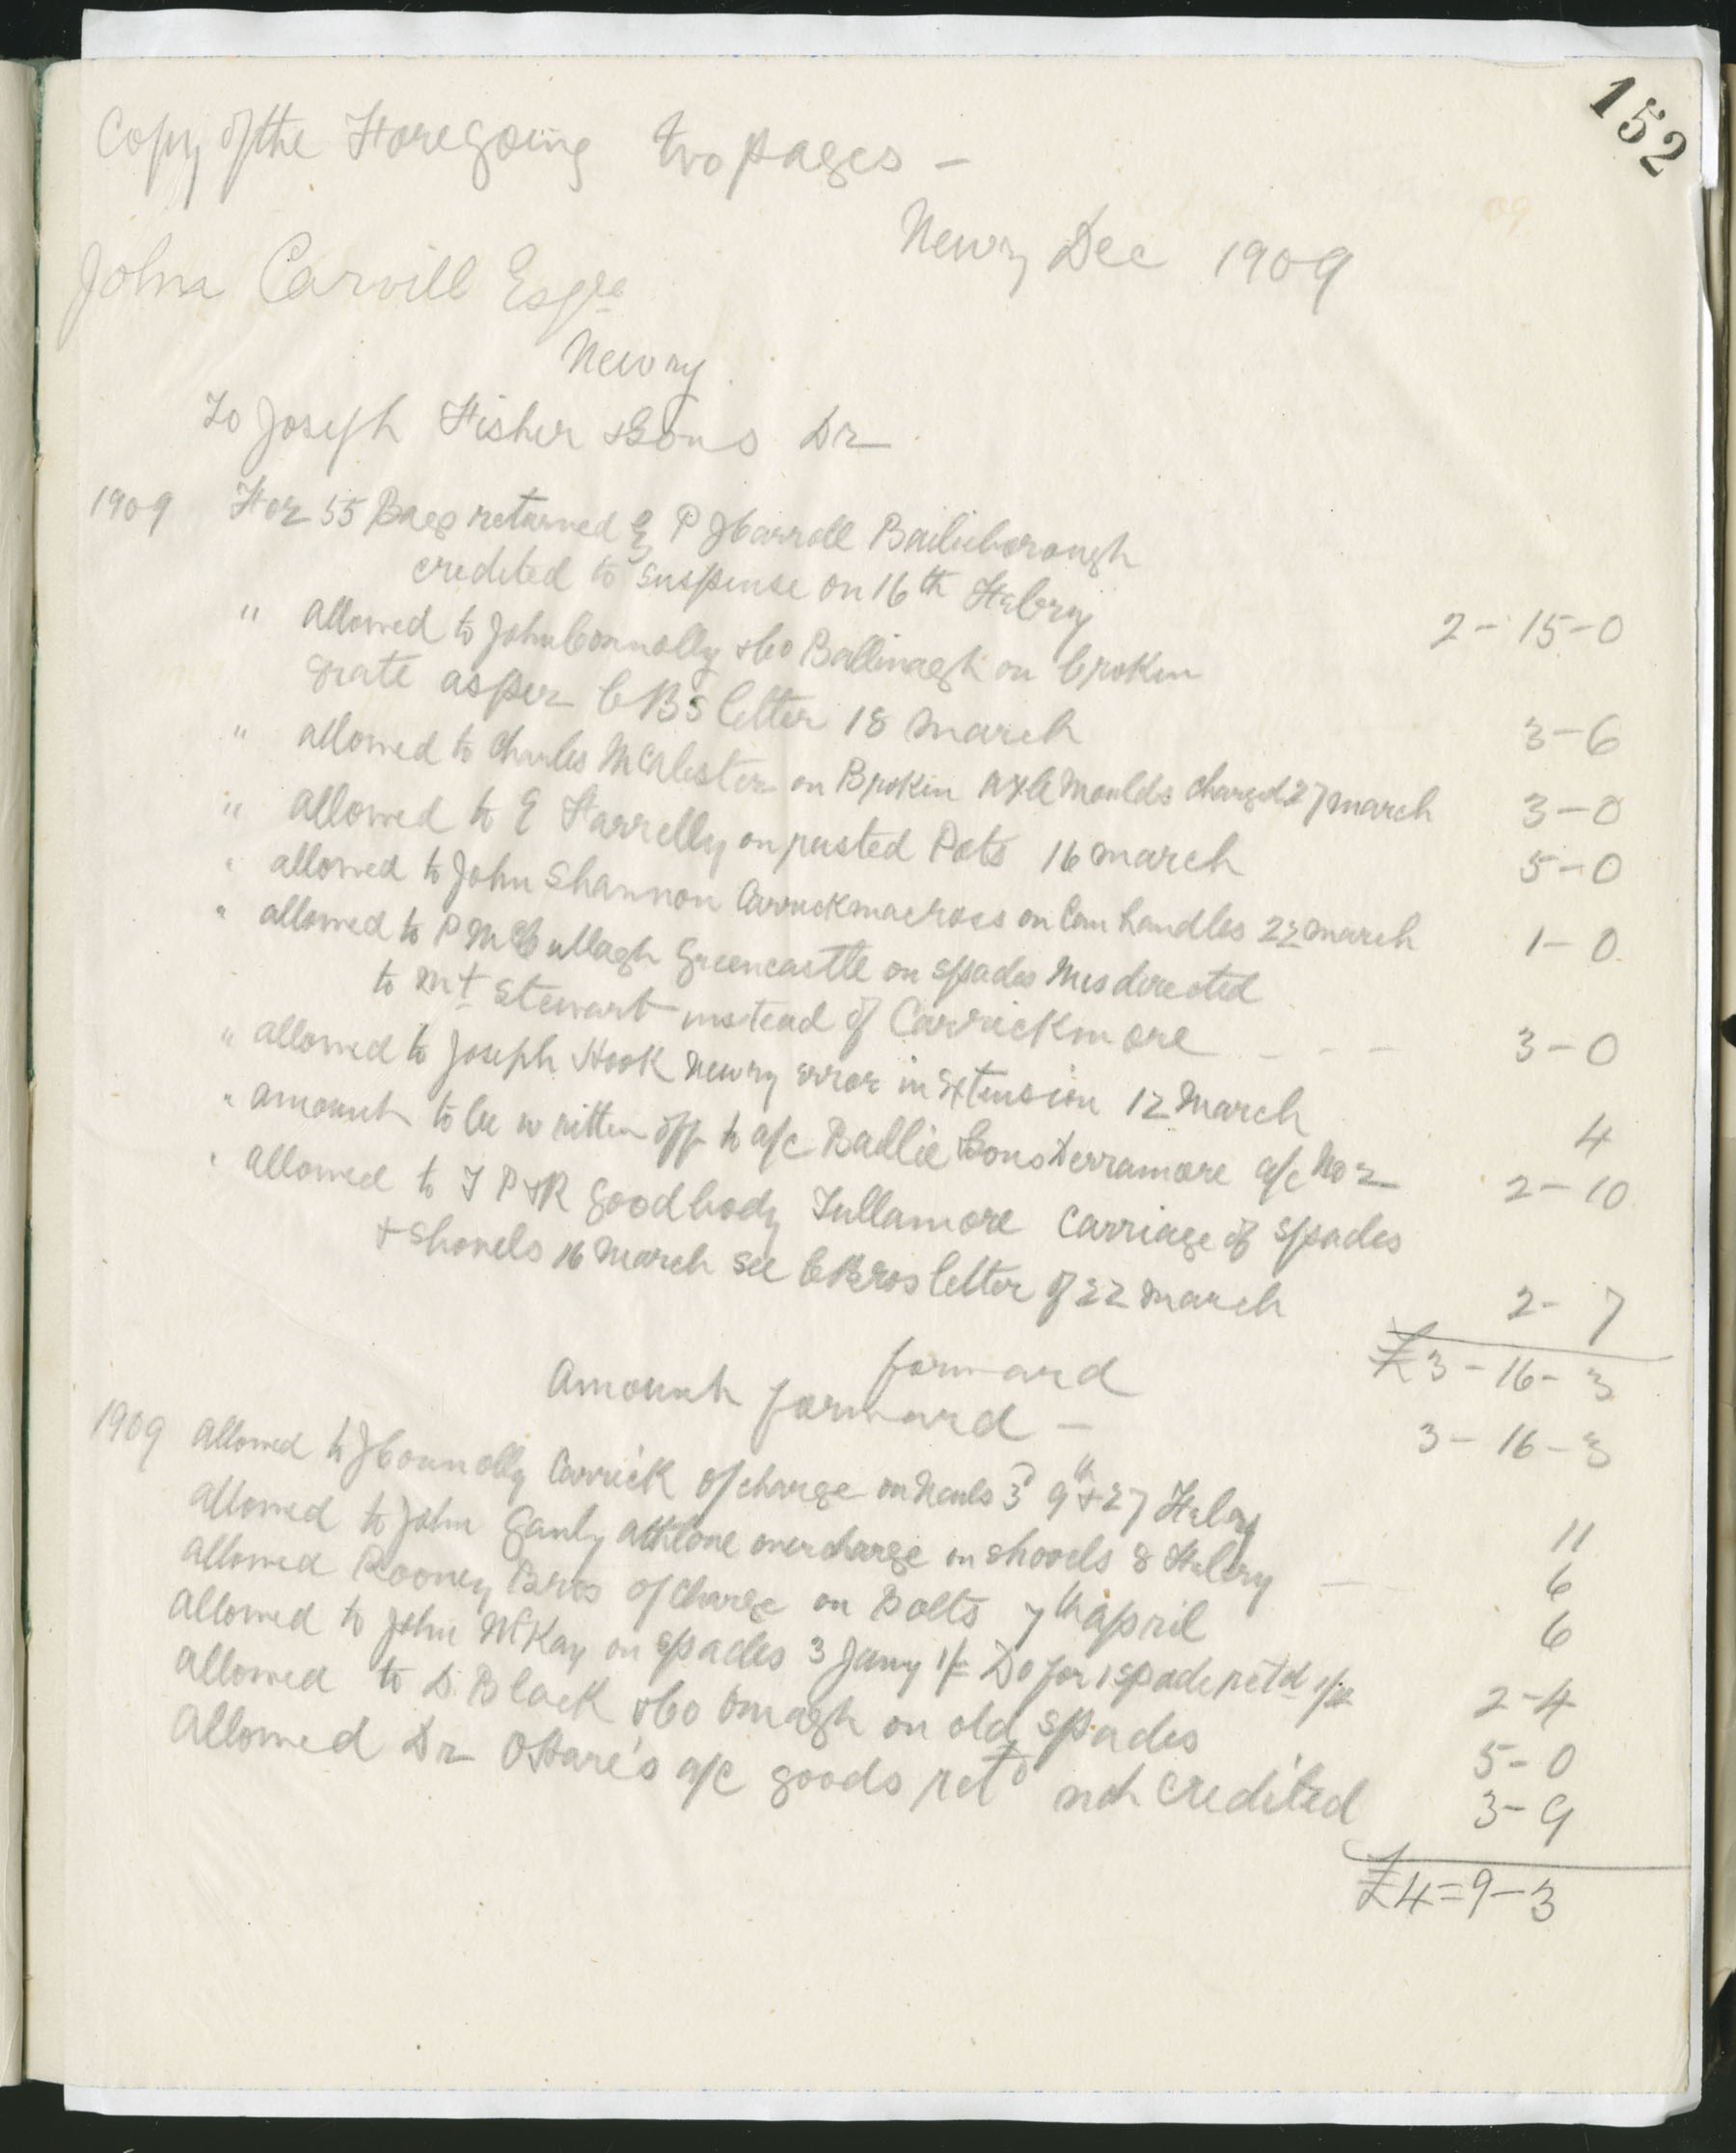 152
Copy of the Foregoing two pages -
Newry Dec 1909
John Carvill Esqre
Newry.
To Joseph Fisher & Sons Dr
1909 For 55 Bags returned by P J Carroll Bailieborough
credited to suspense on 16th Febry 2-15-0
" allowed to John Connolly & Co Ballinagh on broken
grate as per C B s letter 18 march 3-6
" allowed to Charles McAlester on Broken axle moulds charged 27 march 3-0
" allowed to E Farrelly on rusted Pots 16 march 5-0
" allowed to John Shannon Carrickmacross on Can handles 22 march 1-0
" allowed to P McCullagh Greencastle on spades misdirected
to Mt Stewart instead of Carrickmore - - - 3-0
" allowed to Joseph Hook Newry error in Extension 12 March 4
" amount to be written off to a/c Baillie & Sons Derramore a/c No 2 2-10
" allowed to T P & R Goodbody Tullamore carriage of spades
& shovels 16 march see C Bros letter of 22 march 2-7
forward £3-16-3
Amount forward - 3-16-3
1909 allowed to J Connolly Carrick o/charge on 3 9th & 27 Febry 11
allowed to John Ganly Athlone overcharge on shovels 8 Febry - 6
allowed Rooney Bros o/charge on Bolts 7th april 6
allowed to John McKay on spades 3 Jany 1/- Do for 1 spade retd 1/4 2-4
allowed to D. Black & Co Omagh on old spades 5-0
Allowed Dr O'Hare's a/c goods retd not credited 3-9
£4=9-3